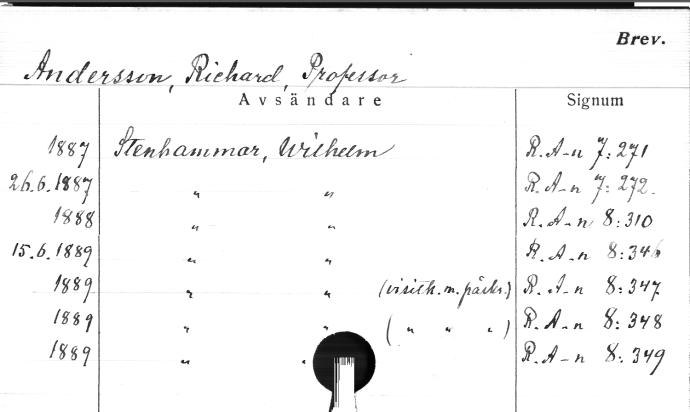 Brev.
Andersson, Richard, Professor
Avsändare Signum
1887 Stenhammar, Wilhelm R. A-n 7:271
26.6.1887 " " R. A-n 7:272.
1888 " " R. A-n 8:310
15.6.1889 " " R. A-n 8:346
1889 " " (visitk. m. påskr.) R. A-n 8:347
1889 " " ( " " " ) R. A-n 8:348
1889 " " R. A-n 8:349